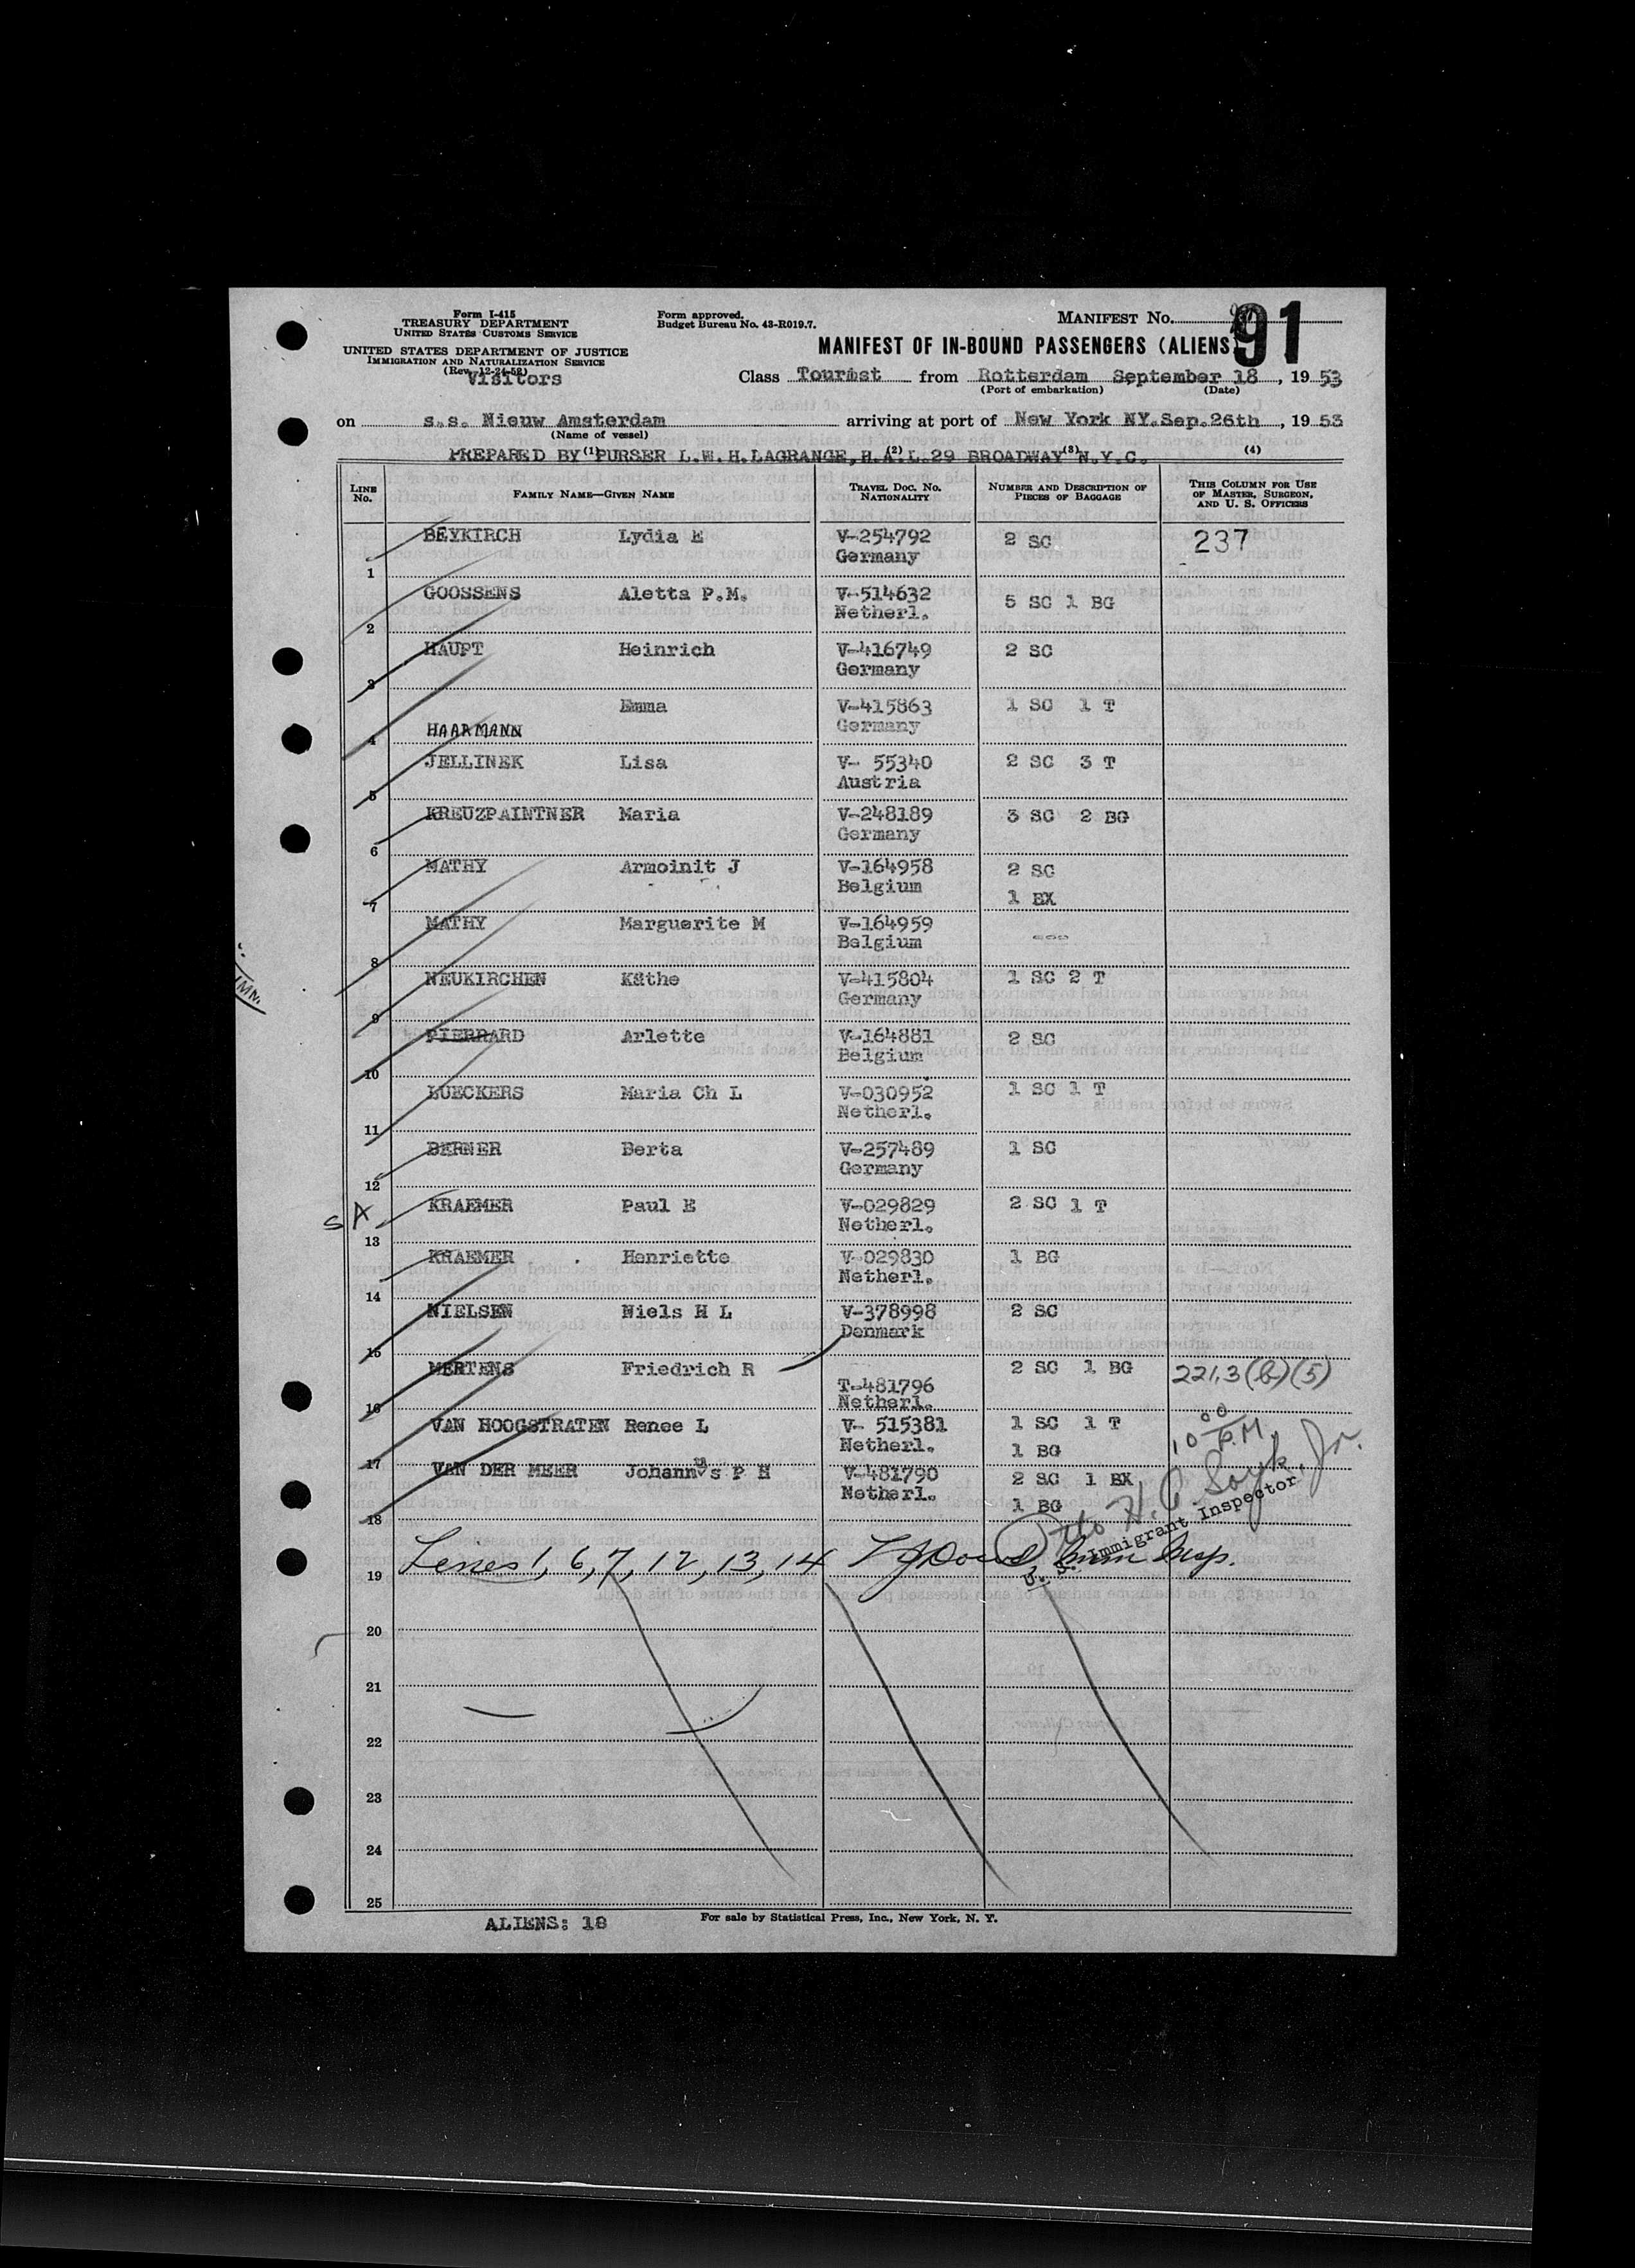 Form I-415
TREASURY DEPARTMENT
UNITED STATES CUSTOMS SERVICE
UNITED STATES DEPARTMENT OF JUSTICE
IMMIGRATION AND NATURALIZATION SERVICE
(Rev. 12-24-52)
Visitors
Form approved.
Budget Bureau No. 43-R019.7.
MANIFEST No. 91
MANIFEST OF IN-BOUND PASSENGERS (ALIENS)
Class Tourist from Rotterdam September 18, 1953
(Port of embarkation) (Date)
on s.s. Nieuw Amsterdam arriving at port of New York NY. Sep. 26th, 1953
(Name of vessel)
PREPARED BY PURSER L.W.H. LAGRANGE, H.A.L. 29 BROADWAY N.Y.C.
(1) (2) (3) (4)
LINE No. FAMILY NAME—GIVEN NAME TRAVEL DOC. NO. NATIONALITY NUMBER AND DESCRIPTION OF PIECES OF BAGGAGE THIS COLUMN FOR USE OF MASTER, SURGEON, AND U. S. OFFICERS
1 BEYKIRCH Lydia E V-254792 Germany 2 SC 237
2 GOOSSENS Aletta P.M. V-514632 Netherl. 5 SC 1 BG
3 HAUPT Heinrich V-416749 Germany 2 SC
4 HAARMANN Emma V-415863 Germany 1 SC 1 T
5 JELLINEK Lisa V- 55340 Austria 2 SC 3 T
6 KREUZPAINTNER Maria V-248189 Germany 3 SC 2 BG
7 MATHY Armoinit J V-164958 Belgium 2 SC 1 BX
8 MATHY Marguerite M V-164959 Belgium ---
9 NEUKIRCHEN Käthe V-415804 Germany 1 SC 2 T
10 PIERRARD Arlette V-164881 Belgium 2 SC
11 LUECKERS Maria Ch L V-030952 Netherl. 1 SC 1 T
12 BERNER Berta V-257489 Germany 1 SC
SA 13 KRAEMER Paul E V-029829 Netherl. 2 SC 1 T
14 KRAEMER Henriette V-029830 Netherl. 1 BG
15 NIELSEN Niels H L V-378998 Denmark 2 SC
16 MERTENS Friedrich R T-481796 Netherl. 2 SC 1 BG 221.3(b)(5)
17 VAN HOOGSTRATEN Renee L V- 515381 Netherl. 1 SC 1 T 1 BG 10 00 P.M.
18 VAN DER MEER Johannus P H V-481790 Netherl. 2 SC 1 BX 1 BG
Otto H. C. Soyk, Jr.
U. S. Immigrant Inspector
19 Lines 1, 6, 7, 12, 13, 14 Imm Insp.
20
21
22
23
24
25
ALIENS: 18
For sale by Statistical Press, Inc., New York, N. Y.
IMM